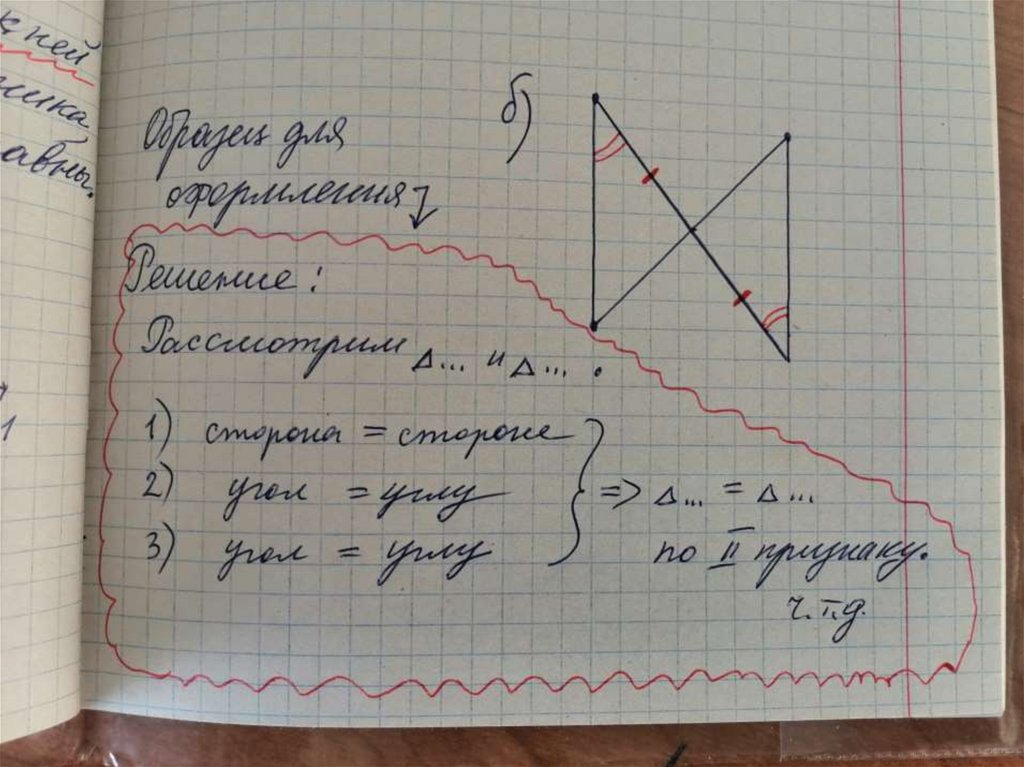 к ней
авны.
1
Образец для
оформления
б)
Решение:
Рассмотрим Δ... и Δ... .
1) сторона = стороне
2) угол = углу
3) угол = углу
=> Δ... = Δ...
по II признаку.
ч.т.д.